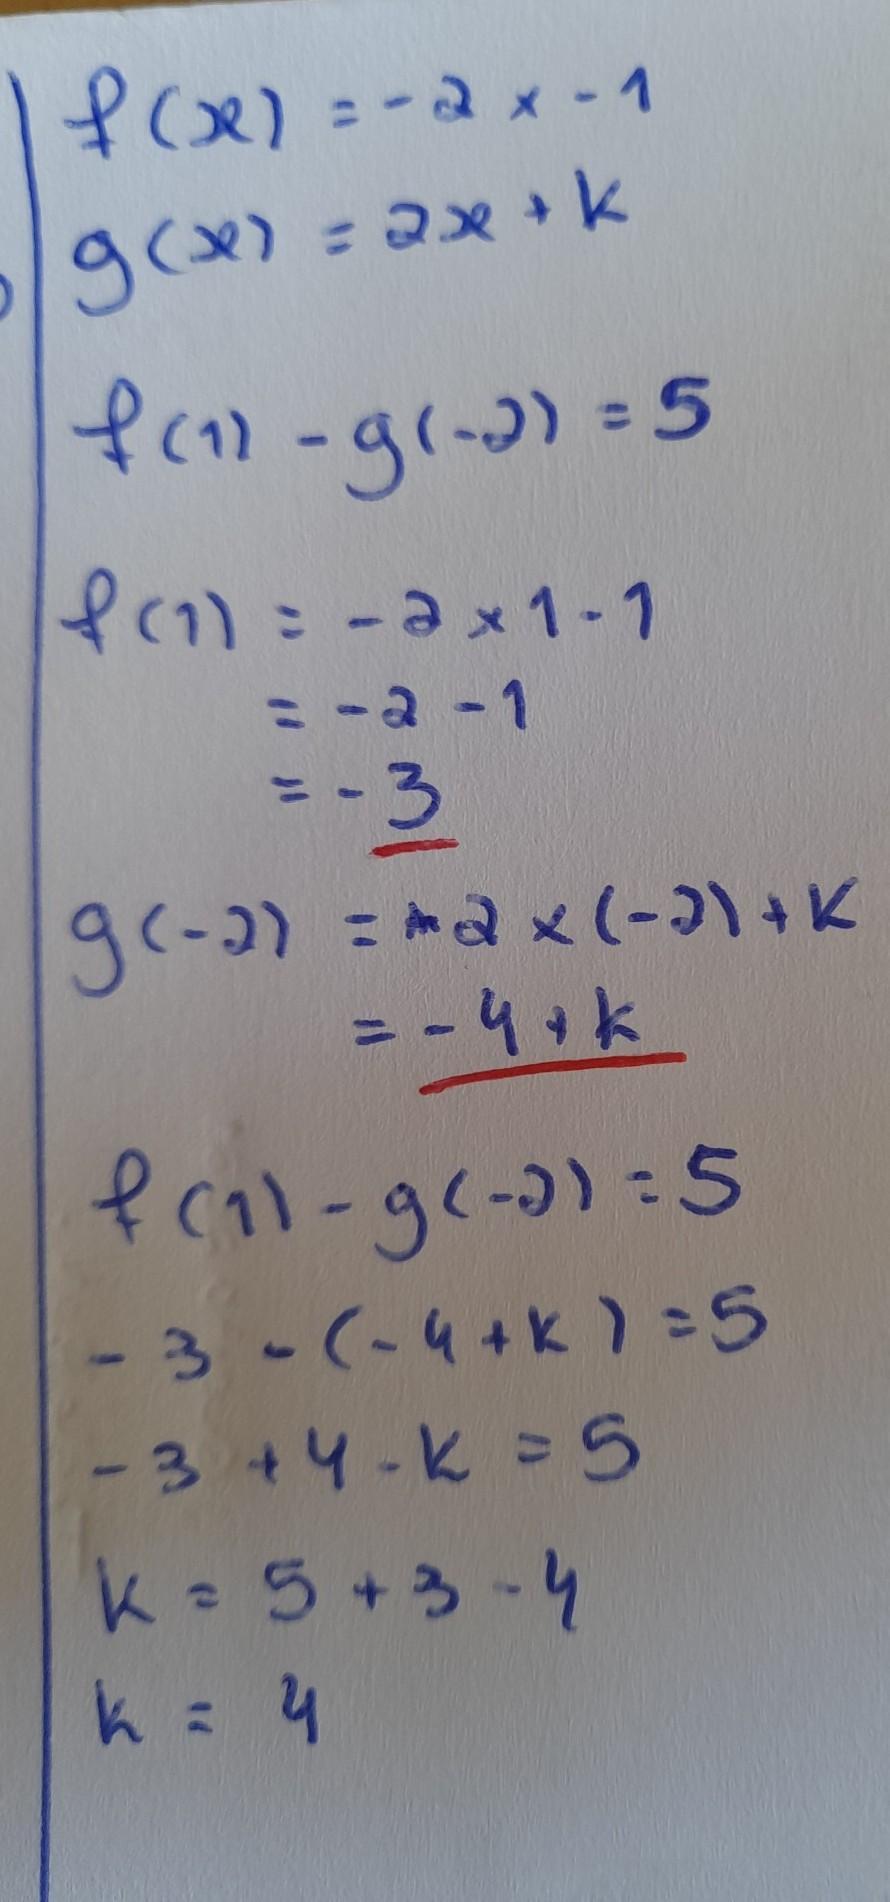 f(x) = -2 x - 1
g(x) = 2x + k
f(1) - g(-2) = 5
f(1) = -2 x 1 - 1
= -2 - 1
= - 3
g(-2) = 2 x (-2) + k
= - 4 + k
f(1) - g(-2) = 5
- 3 - (- 4 + k) = 5
- 3 + 4 - k = 5
k = 5 + 3 - 4
k = 4